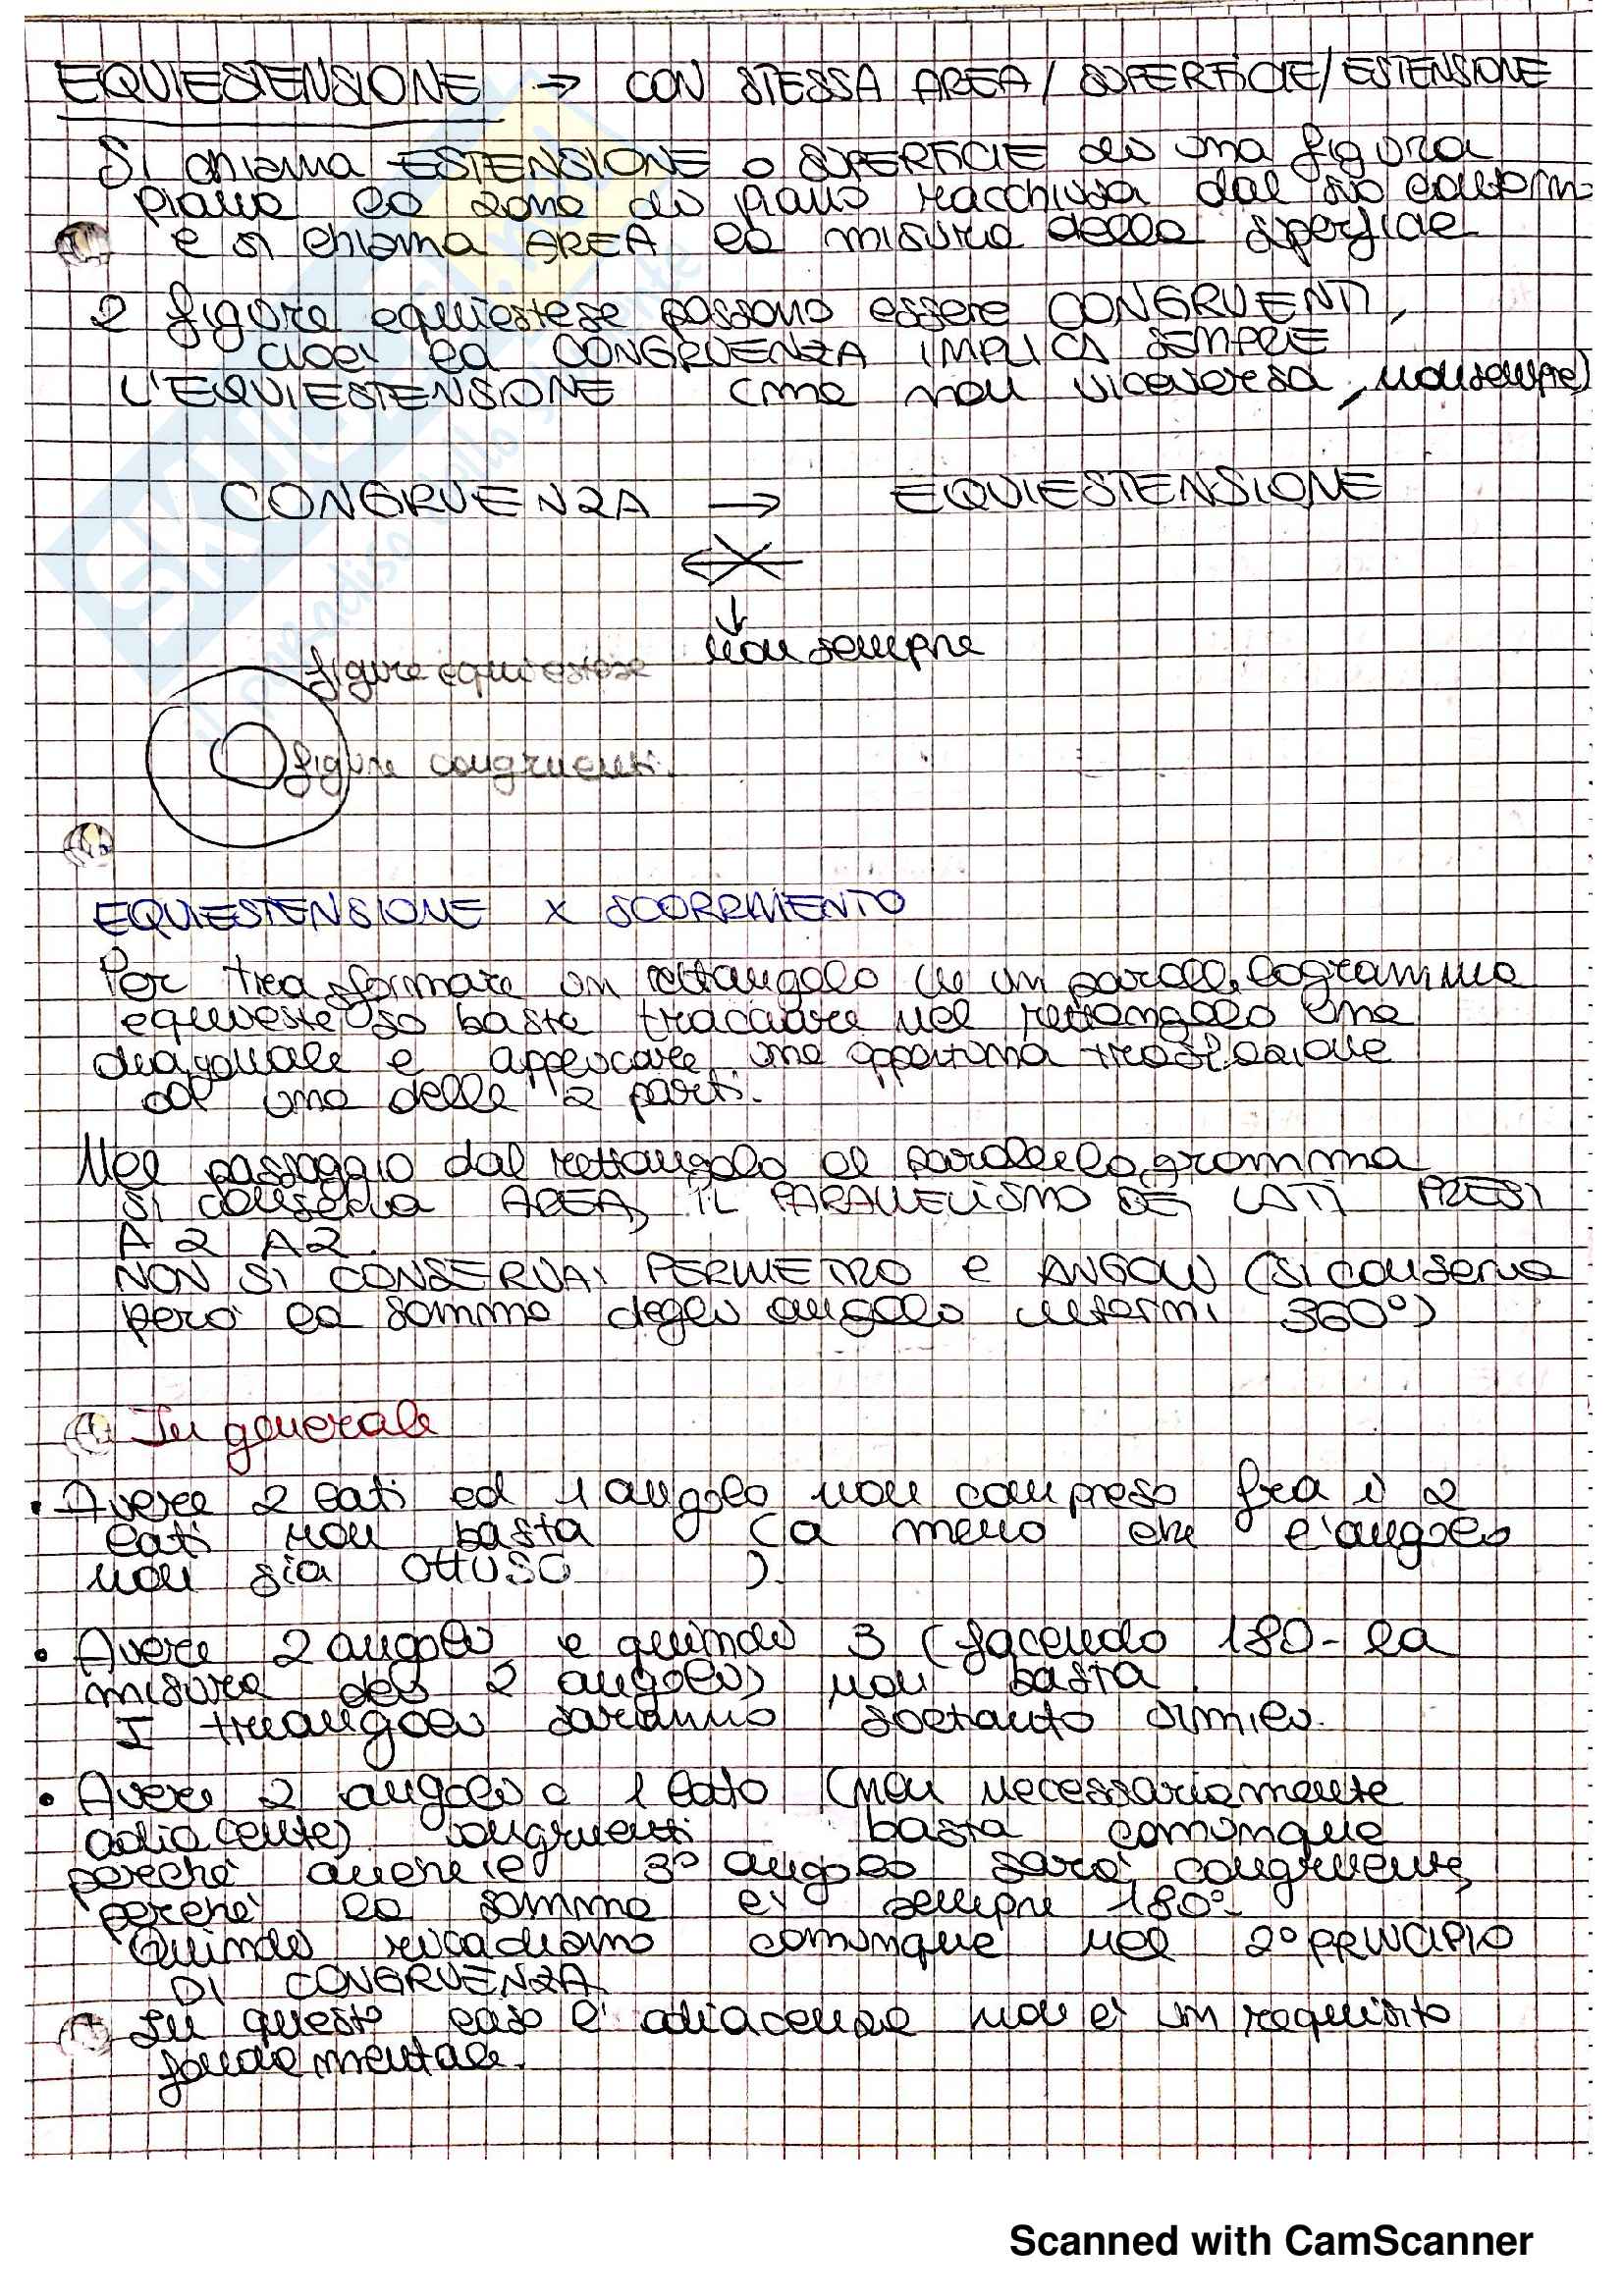 EQUIESTENSIONE → CON STESSA AREA/SUPERFICIE/ESTENSIONE
Si chiama ESTENSIONE o SUPERFICIE di una figura
piana la zona di piano racchiusa dal suo contorn
e si chiama AREA la misura della superficie
2 figure equiestese possono essere CONGRUENTI,
cioè la CONGRUENZA IMPLICA SEMPRE
L'EQUIESTENSIONE (ma non viceversa, non sempre)
CONGRUENZA → EQUIESTENSIONE
↓
non sempre
figure equiestese
figure congruenti.
EQUIESTENSIONE X SCORRIMENTO
Per trasformare un rettangolo in un parallelogramma
equiesteso basta tracciare nel rettangolo una
diagonale e applicare una opportuna traslazione
ad una delle 2 parti.
Nel passaggio dal rettangolo al parallelogramma
si conserva AREA, IL PARALLELISMO DEI LATI PRESI
A 2 A 2.
NON SI CONSERVA: PERIMETRO e ANGOLI (si conserva
però la somma degli angoli interni 360°)
In generale
• Avere 2 lati ed 1 angolo non compreso fra i 2
lati non basta (a meno che l'angolo
non sia OTTUSO ).
• Avere 2 angoli e quindi 3 (facendo 180 - la
misura dei 2 angoli) non basta.
I triangoli saranno soltanto simili.
• Avere 2 angoli e 1 lato (non necessariamente
adiacente) congruenti basta comunque
perché anche il 3° angolo sarà congruente,
perché la somma è sempre 180°.
Quindi ricadiamo comunque nel 2° PRINCIPIO
DI CONGRUENZA
In questo caso l'adiacenza non è un requisito
fondamentale.
Scanned with CamScanner